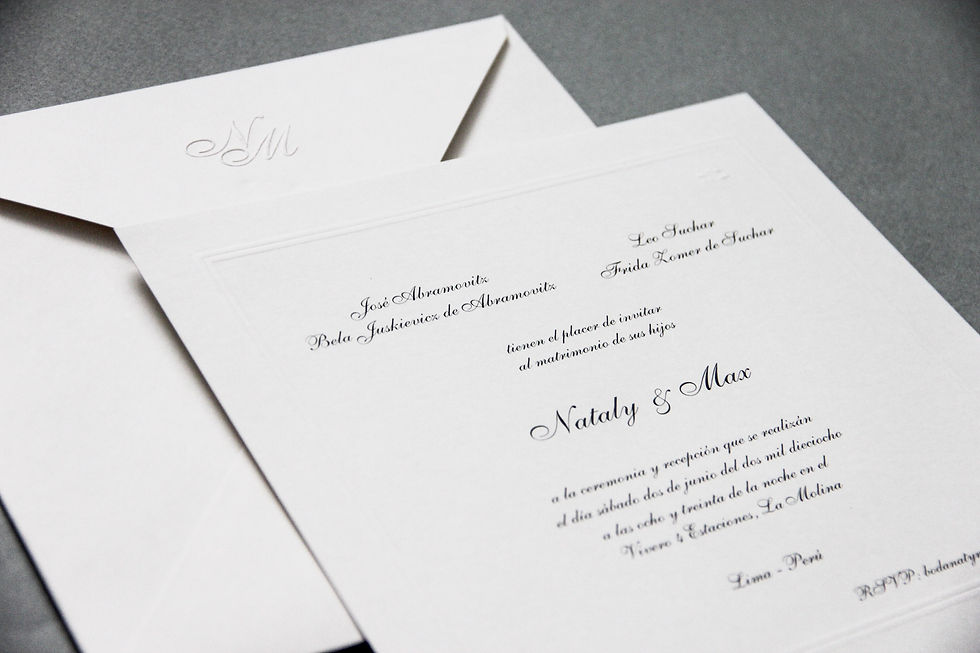 NM
José Abramovitz
Bela Juskievicz de Abramovitz
Leo Suchar
Frida Zomer de Suchar
tienen el placer de invitar
al matrimonio de sus hijos
Nataly & Max
a la ceremonia y recepción que se realizán
el día sábado dos de junio del dos mil dieciocho
a las ocho y treinta de la noche en el
Vivero 4 Estaciones, La Molina
Lima - Perú
RSVP: bodanatyr